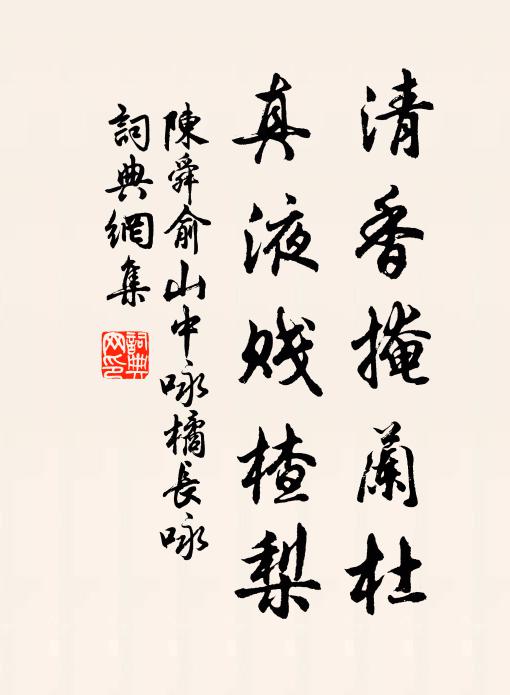 清香掩蘭杜
真液賤楂梨
陳舜俞山中咏橘長咏
詞典網集
詞典網印